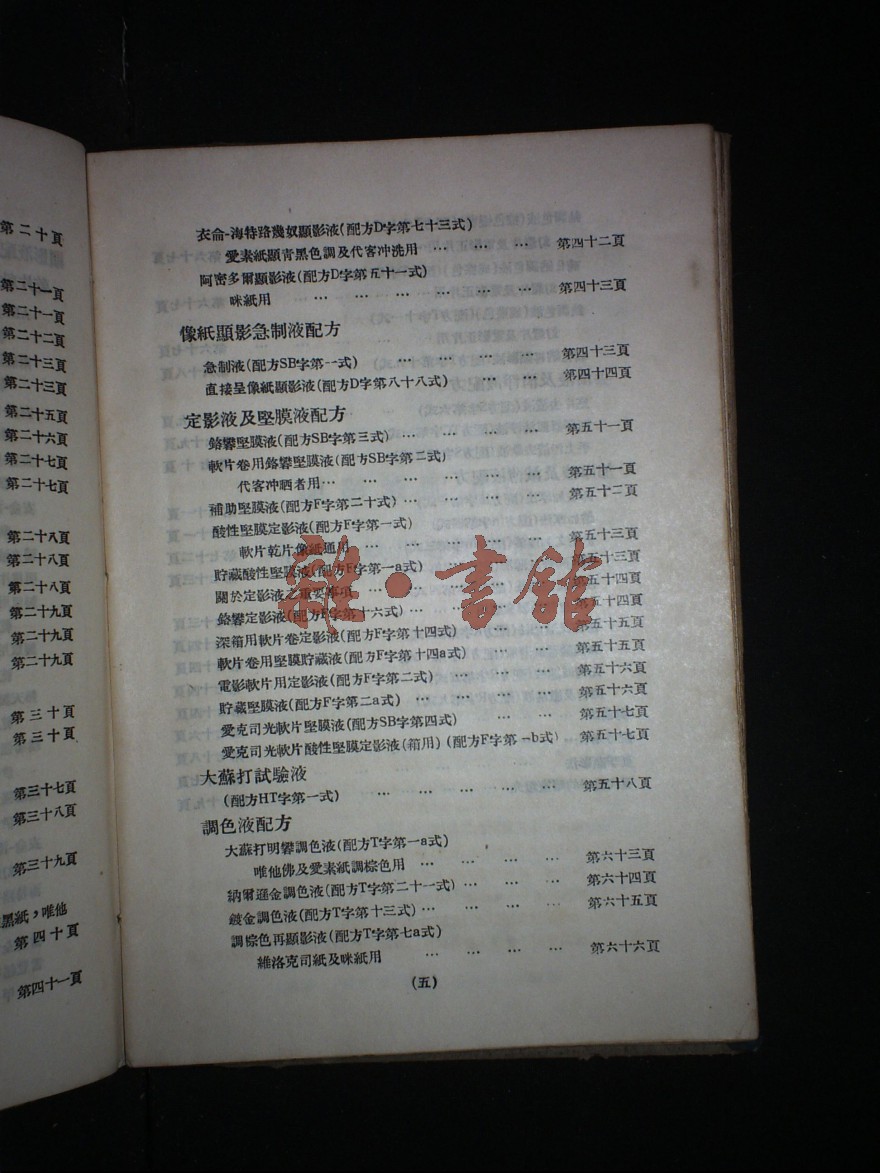 第二十頁
第二十一頁
第二十一頁
第二十二頁
第二十三頁
第二十三頁
第二十五頁
第二十六頁
第二十七頁
第二十七頁
第二十八頁
第二十八頁
第二十八頁
第二十九頁
第二十九頁
第二十九頁
第三十頁
第三十頁
第三十七頁
第三十八頁
第三十九頁
黑紙，唯他
第四十頁
第四十一頁
衣侖-海特路幾奴顯影液(配方D字第七十三式)
愛素紙顯青黑色調及代客冲洗用 … … … 第四十二頁
阿密多爾顯影液(配方D字第五十一式)
咪紙用 … … … … … … 第四十三頁
像紙顯影急制液配方
急制液(配方SB字第一式) … … … … 第四十三頁
直接呈像紙顯影液(配方D字第八十八式) … … 第四十四頁
定影液及堅膜液配方
鉻礬堅膜液(配方SB字第三式) … … … … 第五十一頁
軟片卷用鉻礬堅膜液(配方SB字第二式)
代客冲晒者用… … … … … … 第五十一頁
補助堅膜液(配方F字第二十式) … … … … 第五十二頁
酸性堅膜定影液(配方F字第一式)
軟片乾片像紙通用 … … … … … 第五十三頁
貯藏酸性堅膜液(配方F字第一a式) … … … 第五十三頁
關於定影液之重要事項 … … … … … 第五十四頁
鉻礬定影液(配方F字第十六式) … … … … 第五十四頁
深箱用軟片卷定影液(配方F字第十四式) … … … 第五十五頁
軟片卷用堅膜貯藏液(配方F字第十四a式) … … … 第五十五頁
電影軟片用定影液(配方F字第二式) … … … 第五十六頁
貯藏堅膜液(配方F字第二a式) … … … … 第五十六頁
愛克司光軟片堅膜液(配方SB字第四式) … … 第五十七頁
愛克司光軟片酸性堅膜定影液(箱用) (配方F字第一b式) 第五十七頁
大蘇打試驗液
(配方HT字第一式) … … … … … 第五十八頁
調色液配方
大蘇打明礬調色液(配方T字第一a式)
唯他佛及愛素紙調棕色用 … … … … 第六十三頁
納爾遜金調色液(配方T字第二十一式) … … … 第六十四頁
鍍金調色液(配方T字第十三式) … … … … 第六十五頁
調棕色再顯影液(配方T字第七a式)
維洛克司紙及咪紙用 … … … … 第六十六頁
(五)
雜·書館